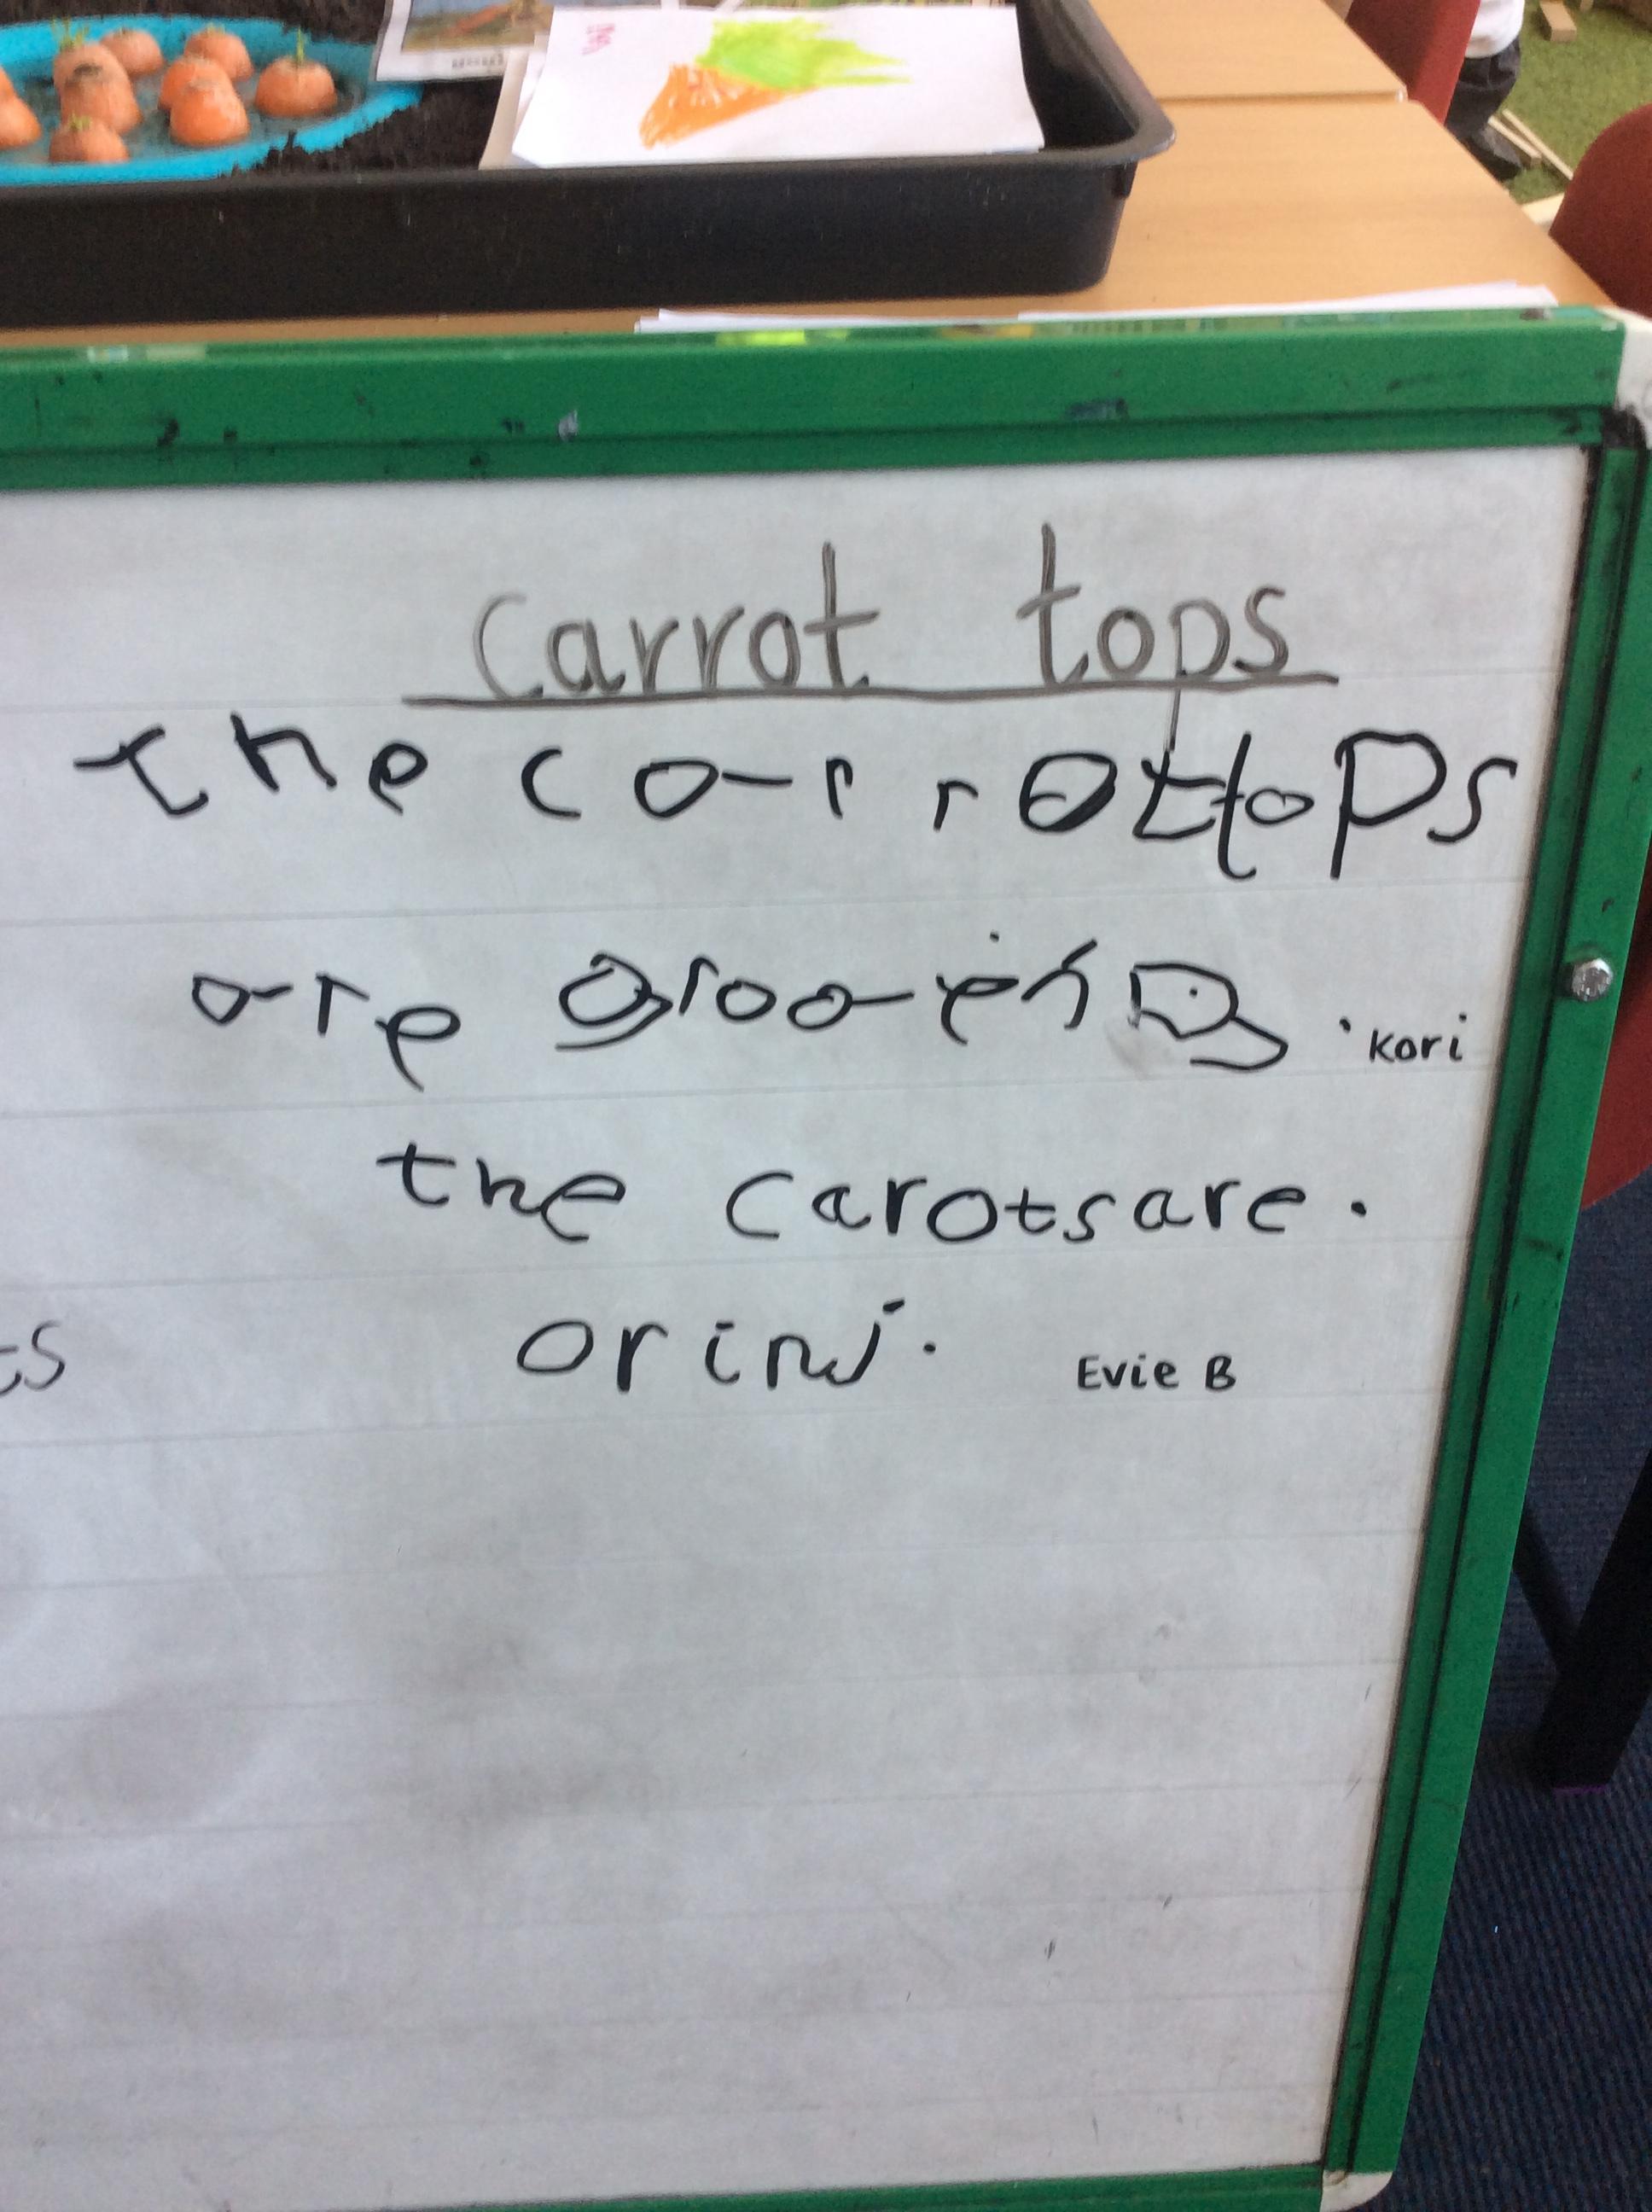 carrot tops
the carrottops
are grooeing . Kori
the carotsare.
orinj. Evie B